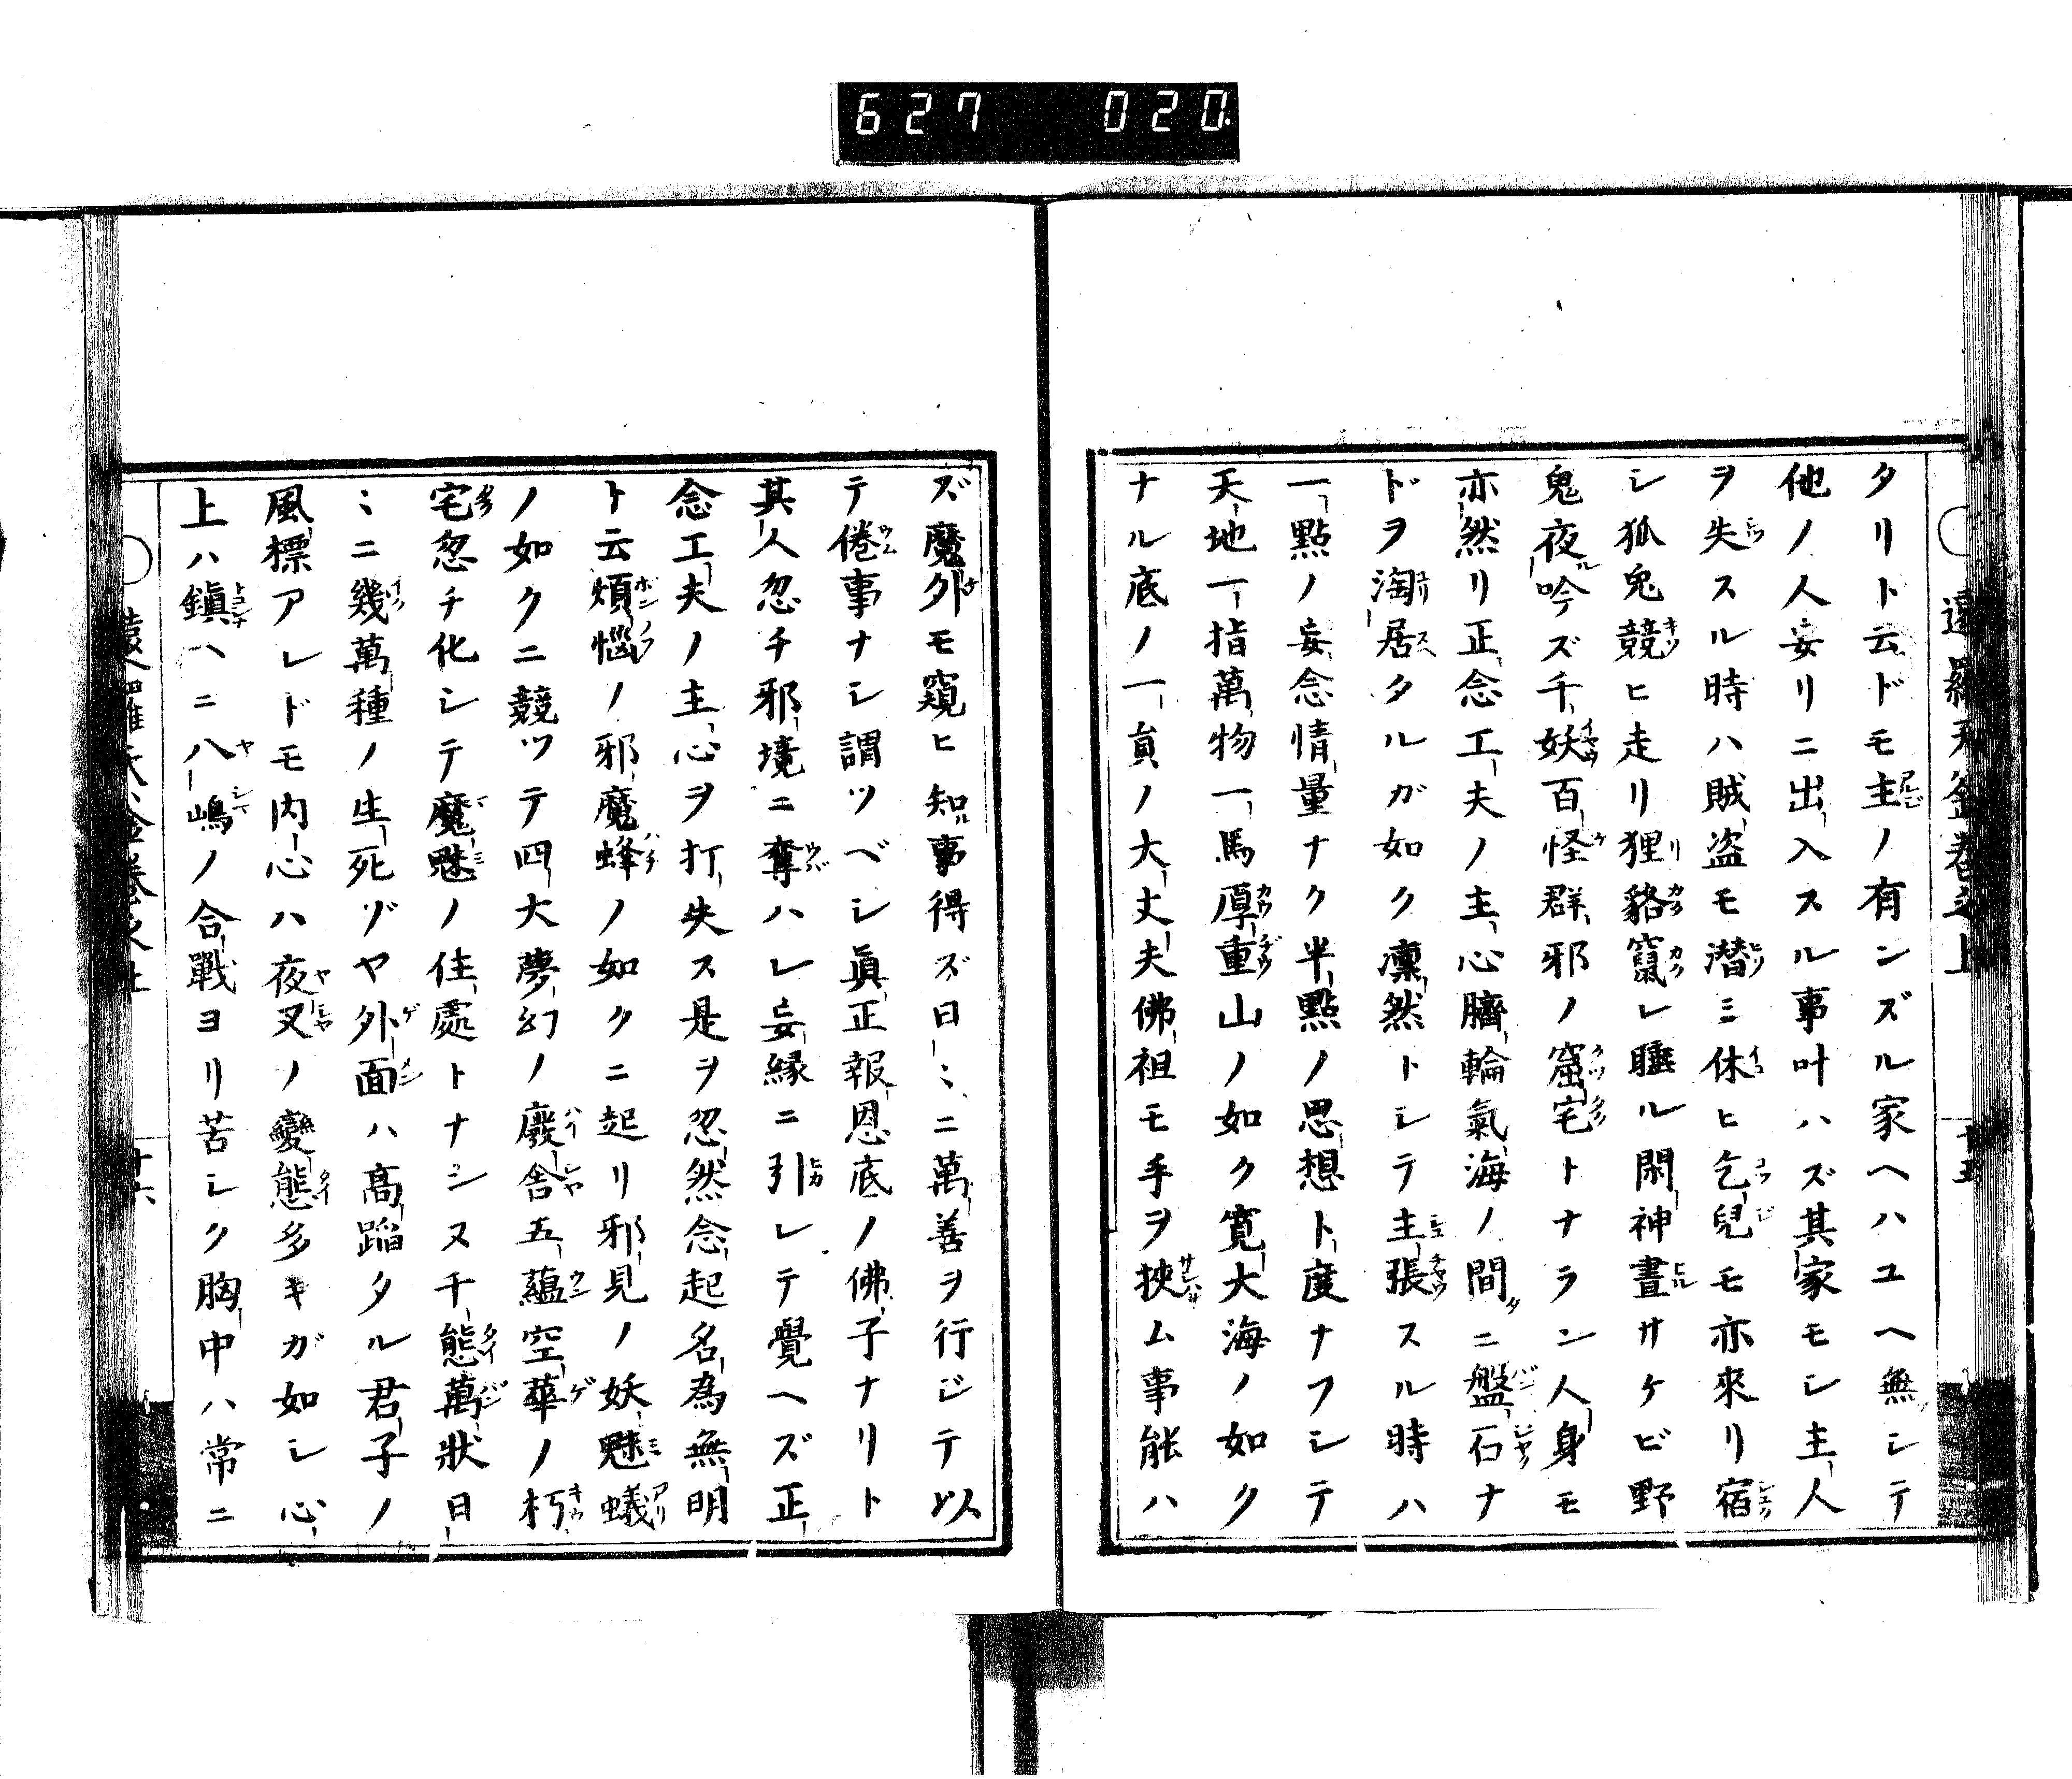 627 020
遠羅天釜卷之上 十五
タリト云ドモ主ノ有ンズル家ヘハユヘ無シテ
他ノ人妄リニ出入スル事叶ハズ其家モシ主人
ヲ失スル時ハ賊盗モ潜ミ休ヒ乞兒モ亦來リ宿
シ狐兎競ヒ走リ狸貉竄レ睡ル閑神晝サケビ野
鬼夜吟ズ千妖百怪群邪ノ窟宅トナラン人身モ
亦然リ正念工夫ノ主心臍輪氣海ノ間ニ盤石ナ
ドヲ淘居タルガ如ク凛然トシテ主張スル時ハ
一點ノ妄念情量ナク半點ノ思想ト度ナフシテ
天地一指萬物一馬厚重山ノ如ク寛大海ノ如ク
ナル底ノ一員ノ大丈夫佛祖モ手ヲ挾ム事能ハ
ズ魔外モ窺ヒ知事得ズ日〻ニ萬善ヲ行ジテ以
テ倦事ナシ謂ツベシ眞正報恩底ノ佛子ナリト
其人忽チ邪境ニ奪ハレ妄縁ニ引レテ覺ヘズ正
念工夫ノ主心ヲ打失ス是ヲ忽然念起名為無明
ト云煩惱ノ邪魔蜂ノ如クニ起リ邪見ノ妖魅蟻
ノ如クニ競ツテ四大夢幻ノ廢舎五蘊空華ノ朽
宅忽チ化シテ魔魅ノ住處トナシヌ千態萬狀日
〻ニ幾萬種ノ生死ゾヤ外面ハ高蹈タル君子ノ
風標アレドモ内心ハ夜叉ノ變態多キガ如シ心
上ハ鎭ヘニ八嶋ノ合戰ヨリ苦シク胸中ハ常ニ
十六